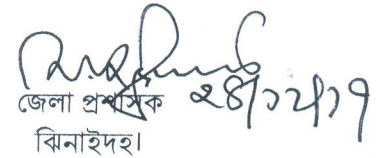 জেলা প্রশাসক ২৪/১২/১৭
ঝিনাইদহ।